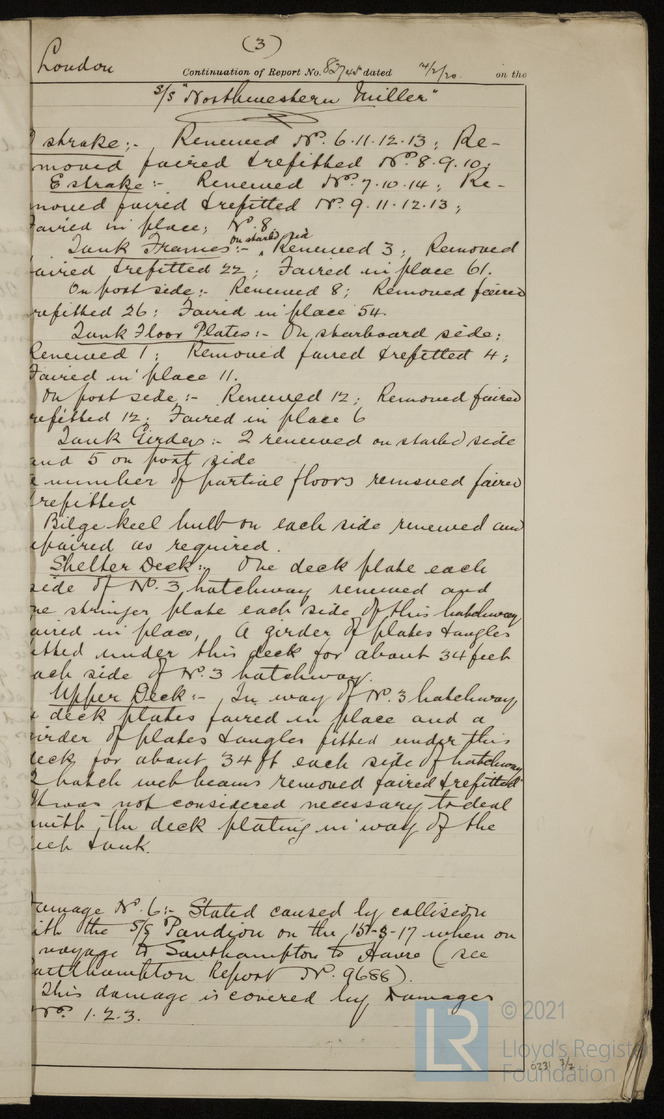 (3)
London Continuation of Report No. 82745 dated 14/2/20. on the
S/S "Northwestern Miller"
D strake :- Renewed No. 6.11.12.13; Re-
moved faired & refitted No. 8.9.10;
E strake :- Renewed No. 7.10.14; Re-
moved faired & refitted No. 9.11.12.13;
faired in place; No. 8
on starbd side
Tank Frames :- Renewed 3; Removed
aired & refitted 22; Faired in place 61.
On port side :- Renewed 8; Removed faired
refitted 26; Faired in place 54.
Tank Floor Plates :- On starboard side;
Renewed 1; Removed faired & refitted 4;
Faired in place 11.
On port side :- Renewed 12; Removed faired
refitted 12; Faired in place 6
Tank Girders :- 2 renewed on starbd side
and 5 on port side
a number of partial floors removed faired
refitted
Bilge keel bulb on each side renewed and
epaired as required.
Shelter Deck :- One deck plate each
side of No. 3 hatchway renewed and
ne stringer plate each side of this hatchway
aired in place, A girder of plates & angles
itted under this deck for about 34 feet
ach side of No. 3 hatchway.
Upper Deck :- In way of No. 3 hatchway,
deck plates faired in place and a
irder of plates & angles fitted under this
deck for about 34 ft each side of hatchway
2 hatch web beams removed faired & refitted
It was not considered necessary to deal
with the deck plating in way of the
tank.
Damage No. 6 :- Stated caused by collision
ith the S/S Pandion on the 15-3-17 when on
voyage to Southampton to Havre (see
outhampton Report No. 9688).
This damage is covered by Damages
No. 1.2.3.
LR
© 2021
Lloyd's Register
Foundation
0231 3/2